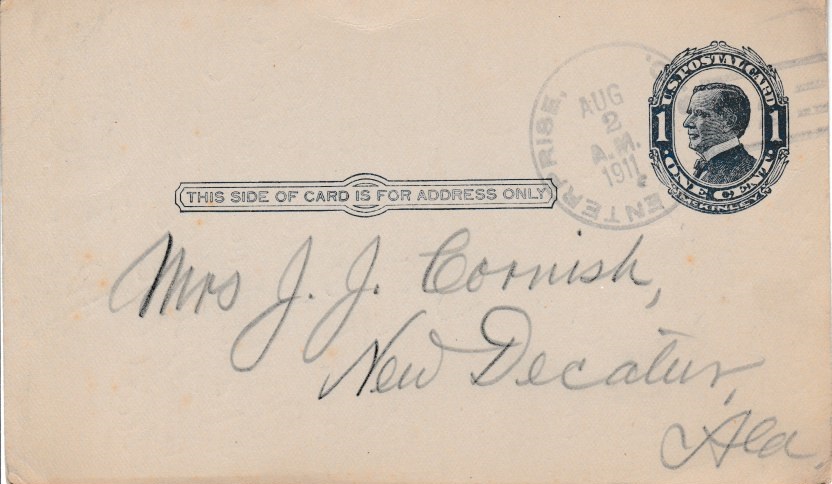 U.S. POSTAL CARD
1 1
ONE CENT
McKINLEY
ENTERPRISE,
AUG
2
A.M.
1911
THIS SIDE OF CARD IS FOR ADDRESS ONLY
Mrs J. J. Cornish,
New Decatur,
Ala.